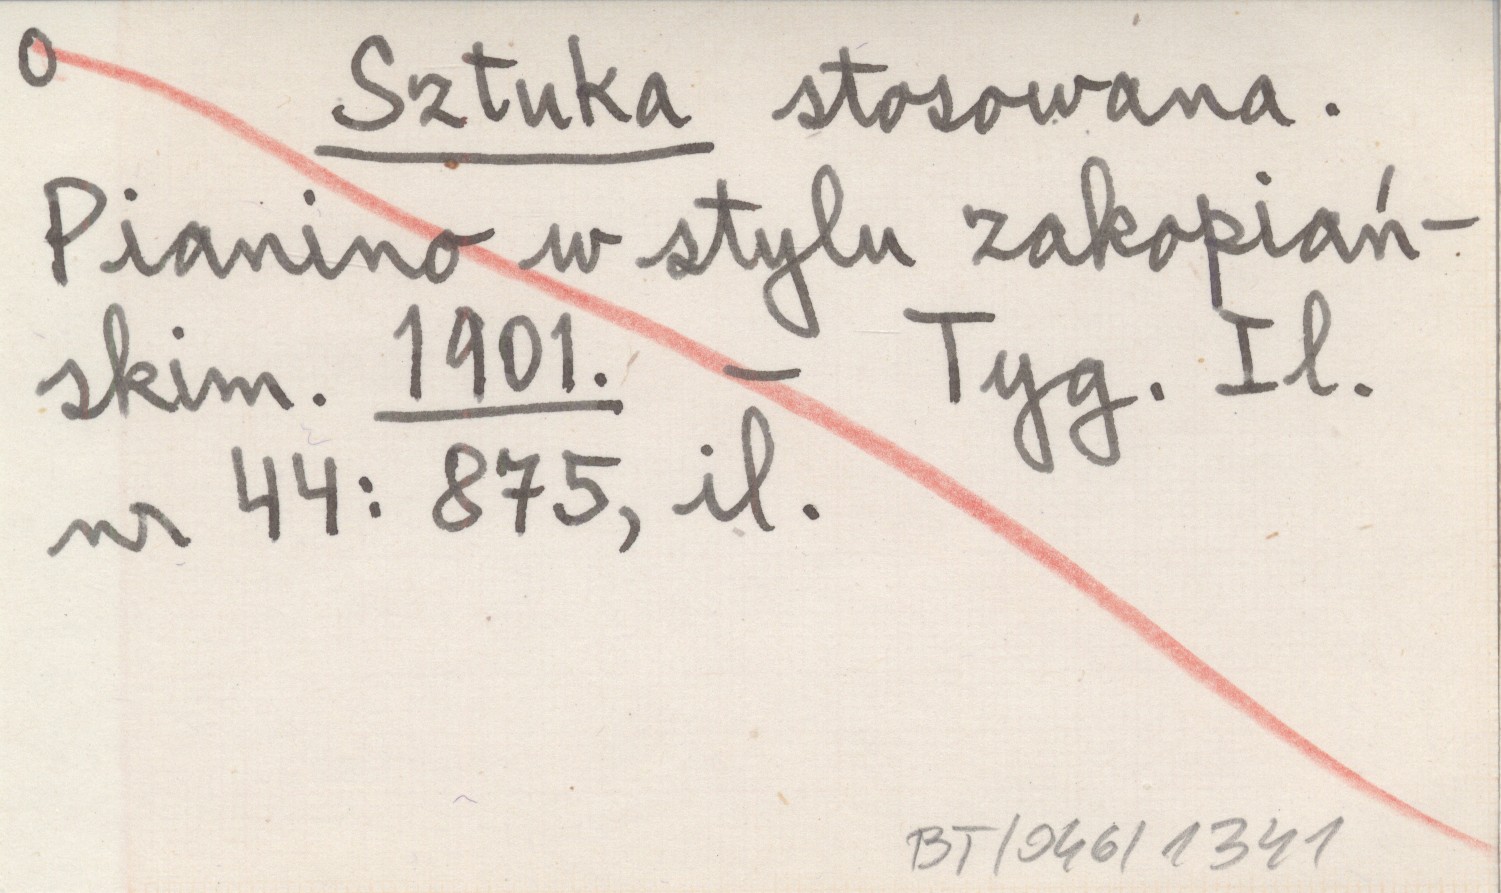 o Sztuka stosowana.
Pianino w stylu zakopiań-
skim. 1901. – Tyg. Il.
nr 44: 875, il.
BT/946/1341